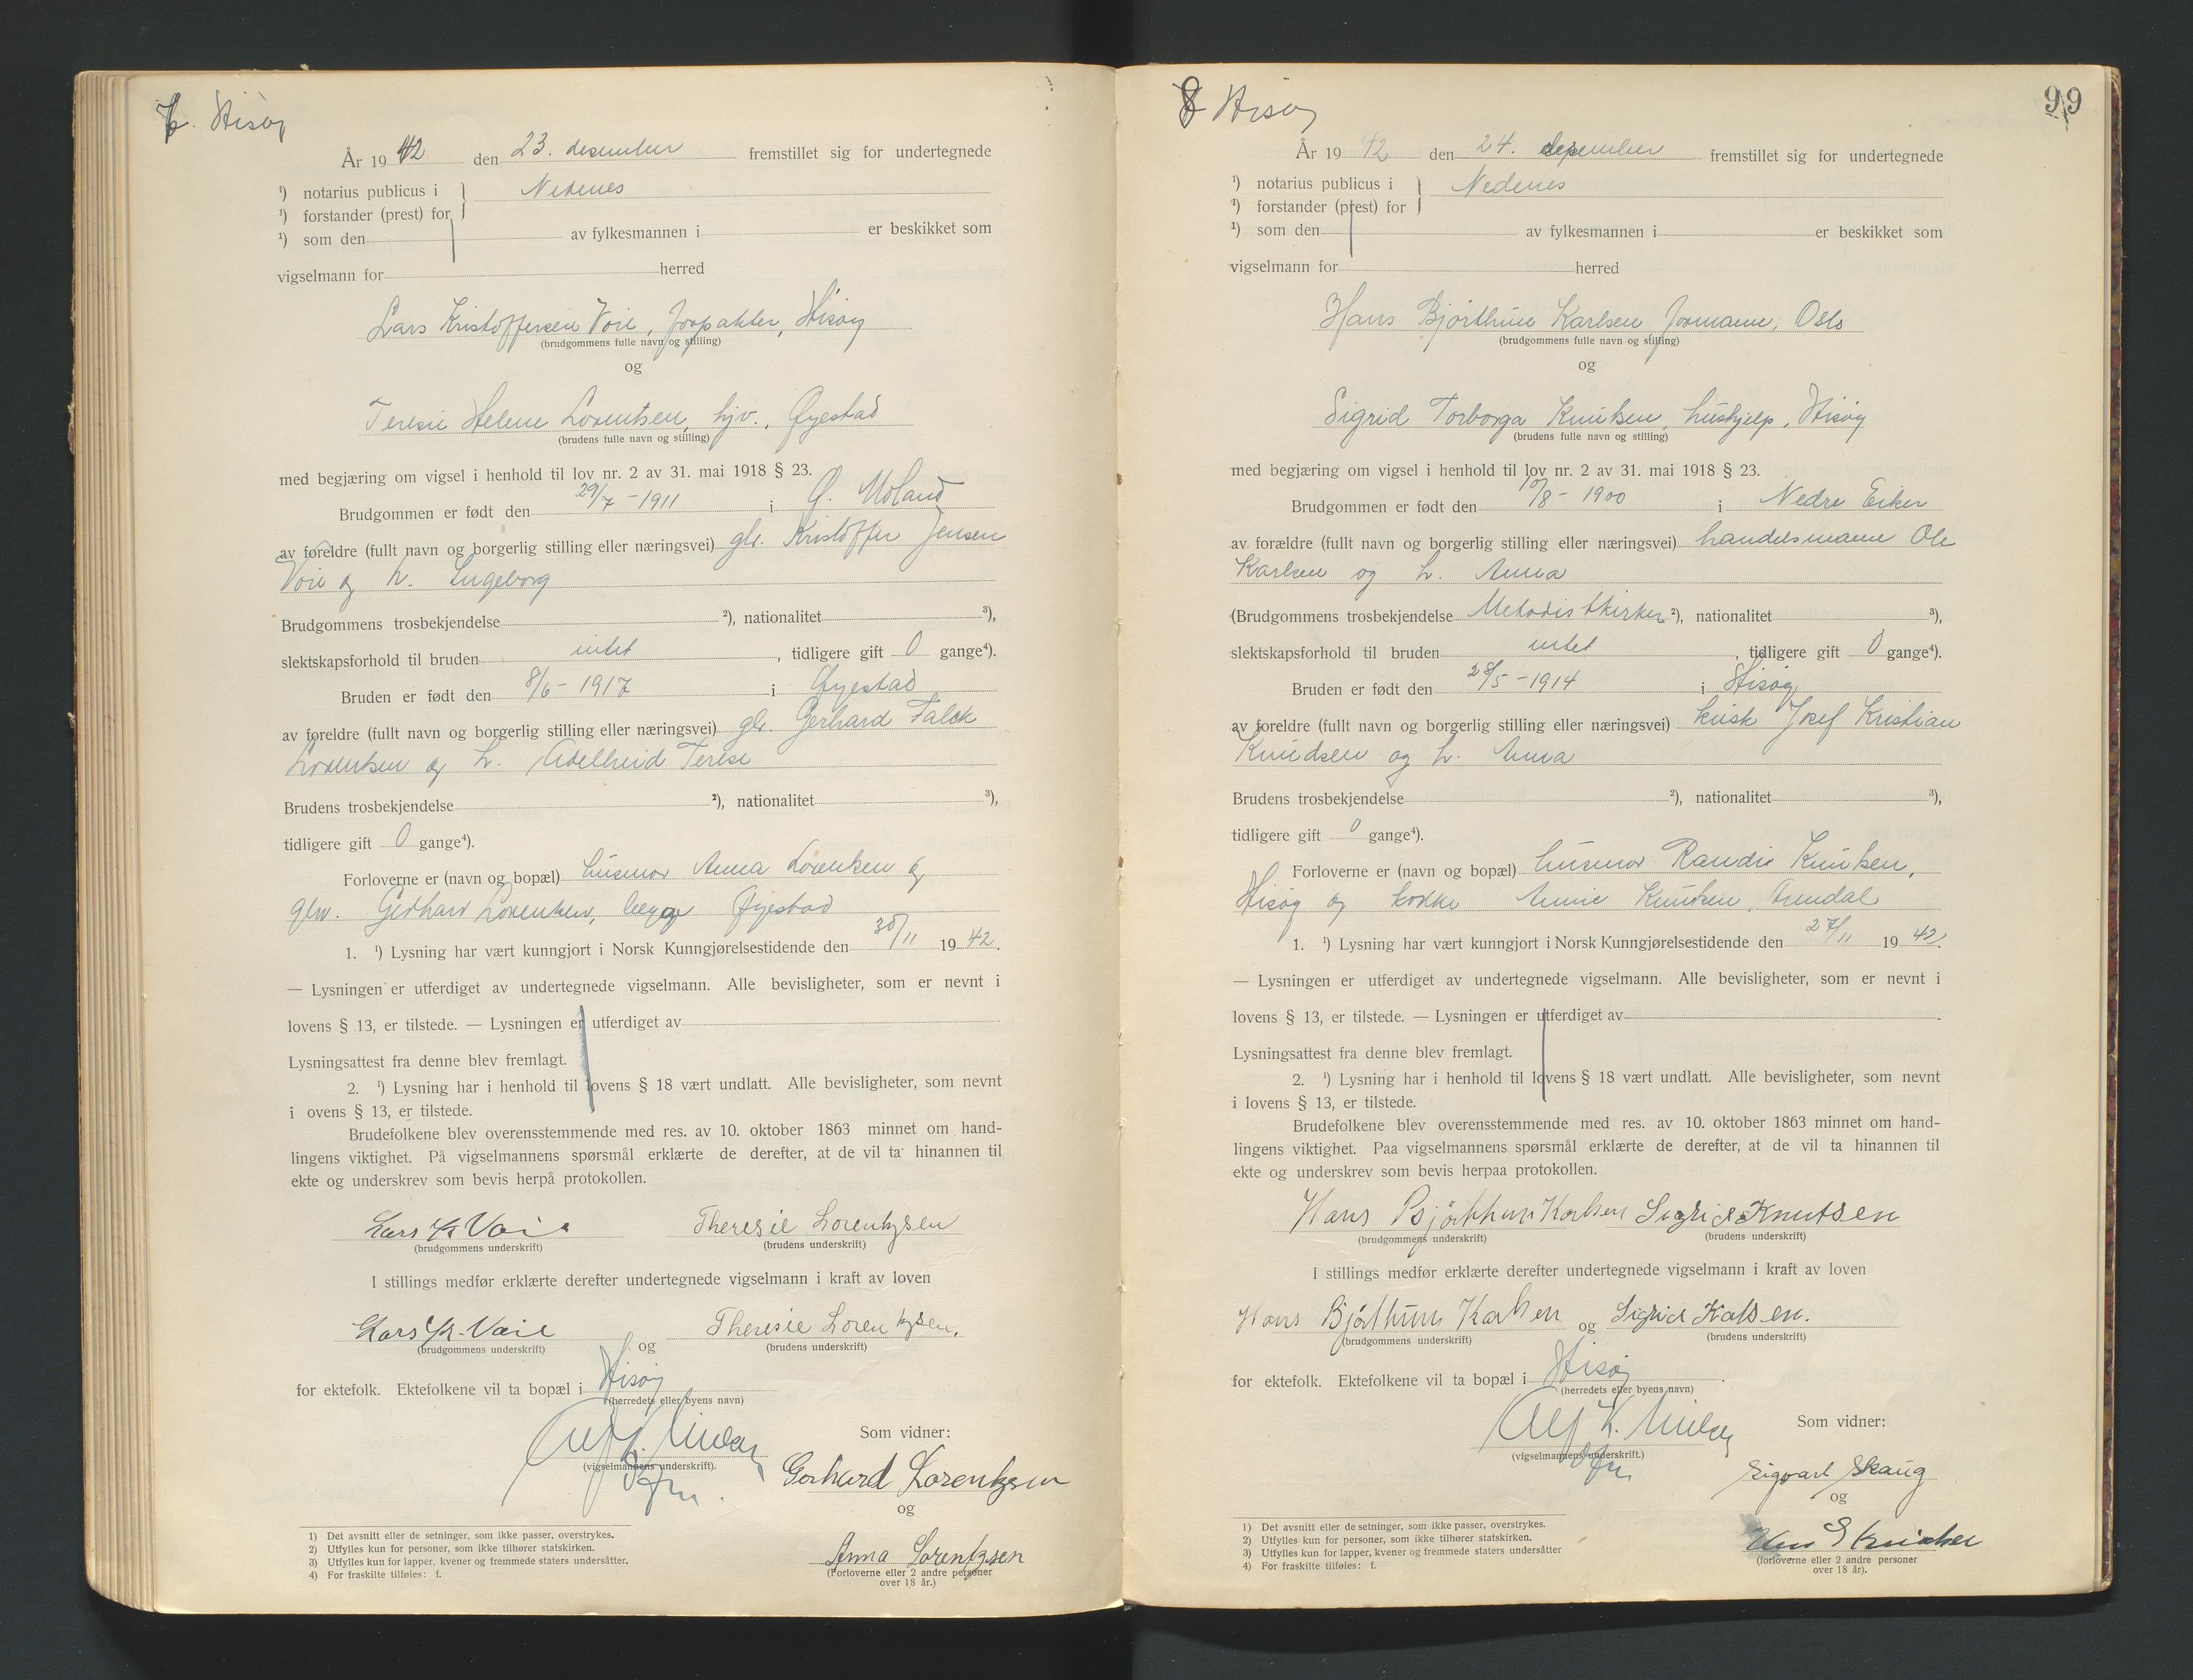 Hisøy
År 19 42 den 23. desember fremstillet sig for undertegnede
¹) notarius publicus i Nedenes
¹) forstander (prest) for
¹) som den av fylkesmannen i er beskikket som
vigselmann for herred
Lars Kristoffersen Voie, forpakter, Hisøy
(brudgommens fulle navn og stilling)
og
Teresie Helene Lorentsen, hjv., Øyestad
(brudens fulle navn og stilling)
med begjæring om vigsel i henhold til lov nr. 2 av 31. mai 1918 § 23.
Brudgommen er født den 29/7 - 1911 i Ø. Moland
av foreldre (fullt navn og borgerlig stilling eller næringsvei) gbr. Kristoffer Jensen
Voie og h. Ingeborg
Brudgommens trosbekjendelse ²), nationalitet ³),
slektskapsforhold til bruden intet, tidligere gift 0 gange⁴).
Bruden er født den 8/6 - 1917 i Øyestad
av foreldre (fullt navn og borgerlig stilling eller næringsvei) gbr. Gerhard Falck
Lorentsen og h. Adelheid Terese
Brudens trosbekjendelse ²), nationalitet ³),
tidligere gift 0 gange⁴).
Forloverne er (navn og bopæl) husmor Anna Lorentsen og
gbr. Gerhard Lorentsen, begge Øyestad
1. ¹) Lysning har vært kunngjort i Norsk Kunngjørelsestidende den 30/11 19 42.
— Lysningen er utferdiget av undertegnede vigselmann. Alle bevisligheter, som er nevnt i
lovens § 13, er tilstede. — Lysningen er utferdiget av
Lysningsattest fra denne blev fremlagt.
2. ¹) Lysning har i henhold til lovens § 18 vært undlatt. Alle bevisligheter, som nevnt
i ovens § 13, er tilstede.
Brudefolkene blev overensstemmende med res. av 10. oktober 1863 minnet om hand-
lingens viktighet. På vigselmannens spørsmål erklærte de derefter, at de vil ta hinannen til
ekte og underskrev som bevis herpå protokollen.
Lars Kr Voie Theresie Lorentzsen
(brudgommens underskrift) (brudens underskrift)
I stillings medfør erklærte derefter undertegnede vigselmann i kraft av loven
Lars Kr. Voie og Theresie Lorentzsen.
(brudgommens underskrift) (brudens underskrift)
for ektefolk. Ektefolkene vil ta bopæl i Hisøy
(herredets eller byens navn)
Alf K. Nielsen
(vigselmannens underskrift).
Som vidner:
Gerhard Lorentzsen
og
Anna Lorentzsen
(Forloverne eller 2 andre personer
over 18 år.)
1) Det avsnitt eller de setninger, som ikke passer, overstrykes.
2) Utfylles kun for personer, som ikke tilhører statskirken.
3) Utfylles kun for lapper, kvener og fremmede staters undersåtter.
4) For fraskilte tilføies: f.
8 Hisøy
99
År 19 42 den 24. desember fremstillet sig for undertegnede
¹) notarius publicus i Nedenes
¹) forstander (prest) for
¹) som den av fylkesmannen i er beskikket som
vigselmann for herred
Hans Bjørthun Karlsen, formann, Oslo
(brudgommens fulle navn og stilling)
og
Sigrid Torborga Knutsen, hushjelp, Hisøy
(brudens fulle navn og stilling)
med begjæring om vigsel i henhold til lov nr. 2 av 31. mai 1918 § 23.
Brudgommen er født den 10/8 - 1900 i Nedre Eiker
av forældre (fullt navn og borgerlig stilling eller næringsvei) handelsmann Ole
Karlsen og h. Anna
(Brudgommens trosbekjendelse Metodistkirken ²), nationalitet ³),
slektskapsforhold til bruden intet, tidligere gift 0 gange⁴).
Bruden er født den 28/5 - 1914 i Hisøy
av foreldre (fullt navn og borgerlig stilling eller næringsvei) kusk Josef Kristian
Knudsen og h. Anna
Brudens trosbekjendelse ²), nationalitet ³),
tidligere gift 0 gange⁴).
Forloverne er (navn og bopæl) husmor Randie Knutsen,
Hisøy og kokke Annie Knutsen, Arendal
1. ¹) Lysning har vært kunngjort i Norsk Kunngjørelsestidende den 27/11 19 42.
— Lysningen er utferdiget av undertegnede vigselmann. Alle bevisligheter, som er nevnt i
lovens § 13, er tilstede. — Lysningen er utferdiget av
Lysningsattest fra denne blev fremlagt.
2. ¹) Lysning har i henhold til lovens § 18 vært undlatt. Alle bevisligheter, som nevnt
i lovens § 13, er tilstede.
Brudefolkene blev overensstemmende med res. av 10. oktober 1863 minnet om hand-
lingens viktighet. Paa vigselmannens spørsmål erklærte de derefter, at de vil ta hinannen til
ekte og underskrev som bevis herpaa protokollen.
Hans Bjørthun Karlsen Sigrid Knutsen
(brudgommens underskrift) (brudens underskrift)
I stillings medfør erklærte derefter undertegnede vigselmann i kraft av loven
Hans Bjørthun Karlsen og Sigrid Kalsen.
(brudgommens underskrift) (brudens underskrift)
for ektefolk. Ektefolkene vil ta bopæl i Hisøy
(herredets eller byens navn)
Alf K. Nielsen
(vigselmannens underskrift.)
Som vidner:
Sigvart Skaug
og
(forloverne eller 2 andre personer
over 18 år).
1) Det avsnitt eller de setninger, som ikke passer, overstrykes.
2) Utfylles kun for personer, som ikke tilhører statskirken.
3) Utfylles kun for lapper, kvener og fremmede staters undersåtter
4) For fraskilte tilføies: f.